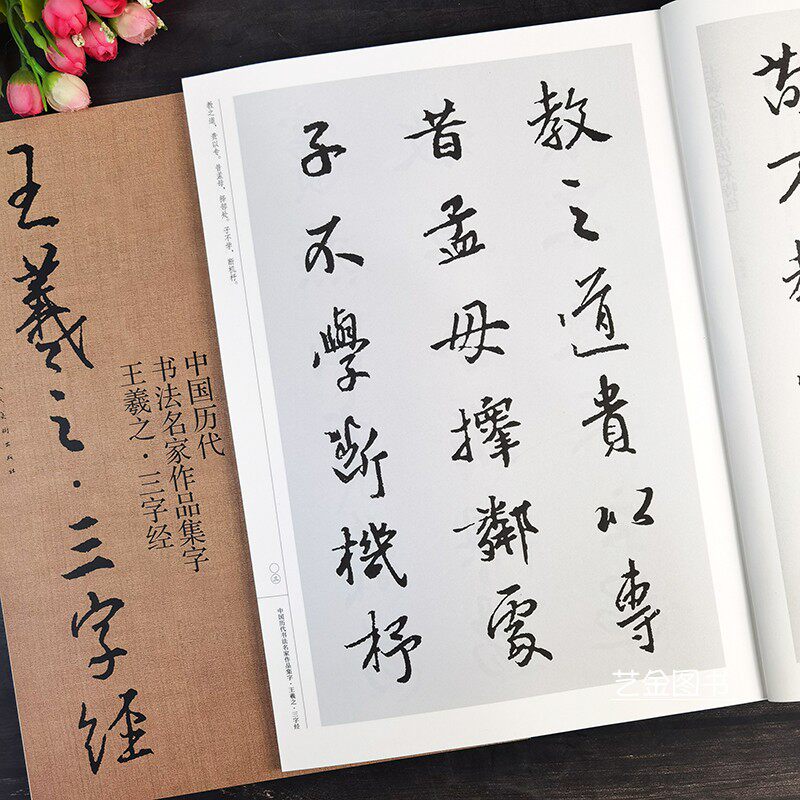 王羲之·三字經
中国历代
书法名家作品集字
王羲之·三字经
教之道貴以專
昔孟母擇鄰處
子不學斷機杼
教之道，贵以专。昔孟母，择邻处。子不学，断机杼。
〇三
中国历代书法名家作品集字·王羲之·三字经
艺金图书